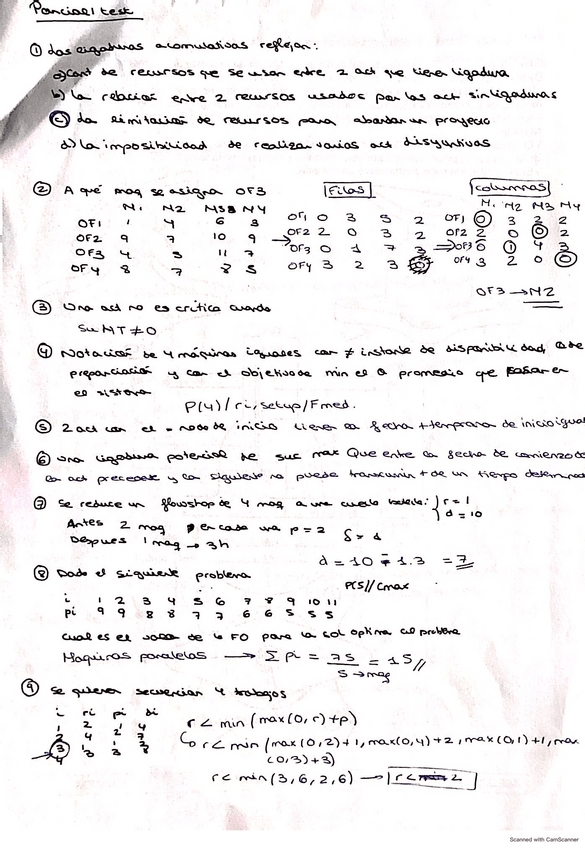 Parcial 1 test
① Las ligaduras acumulativas reflejan:
a) Cant de recursos que se usan entre 2 act que tienen ligadura
b) La relación entre 2 recursos usados por las act sin ligaduras
c) La limitación de recursos para abordar un proyecto
d) La imposibilidad de realizar varias act disyuntivas
② A qué maq se asigna OF3
Filas
Columnas
M1 M2 M3 M4
OF1 1 4 6 3
OF2 9 7 10 9
OF3 4 5 11 7
OF4 8 7 8 5
OF1 0 3 5 2
OF2 2 0 3 2
OF3 0 1 7 3
OF4 3 2 3 0
M1 M2 M3 M4
OF1 0 3 2 2
OF2 2 0 0 2
OF3 0 1 4 3
OF4 3 2 0 0
OF3 → M2
③ Una act no es crítica cuando
su MT ≠ 0
④ Notación de 4 máquinas iguales con ≠ instante de disponibilidad, de
preparación y con el objetivo de min el promedio que pasar en
el sistema
P(4)/ri, setup/Fmed.
⑤ 2 act con el = nodo de inicio tienen la fecha + temprana de inicio igual
⑥ una ligadura potencial de suc max Que entre la fecha de comienzo de
la act precedente y la siguiente no puede transcurrir + de un tiempo
⑦ Se reduce un flowshop de 4 maq a una cuello botella: { r = 1
d = 10
Antes 2 maq en cada una p = 2
Despues 1 maq → 3h
d = 10 - 1·3 = 7
⑧ Dado el siguiente problema
P(5)//Cmax
i 1 2 3 4 5 6 7 8 9 10 11
pi 9 9 8 8 7 7 6 6 5 5 5
Cual es el valor de la FO para la sol optima del problema
Maquinas paralelas → Σ pi = 75/5 → maq = 15//
⑨ Se quieren secuenciar 4 trabajos
i ri pi di
1 2 1 4
2 4 2 7
3 1 1 3
4 3 3 8
r < min (max(0, r) + p)
r < min (max(0,2)+1, max(0,4)+2, max(0,1)+1, max
(0,3)+3)
r < min (3,6,2,6) → r < 2
Scanned with CamScanner